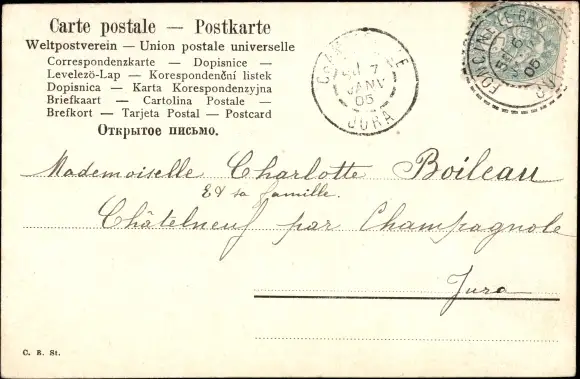 Carte postale — Postkarte
Weltpostverein — Union postale universelle
Correspondenzkarte — Dopisnice —
Levelező-Lap — Korespondenční listek
Dopisnica — Karta Korespondenzyjna
Briefkaart — Cartolina Postale —
Brefkort — Tarjeta Postal — Postcard
Открытое письмо.
7
JANV
05
JURA
6
05
Mademoiselle Charlotte Boileau
Et sa famille.
Châtelneuf par Champagnole
Jura
C. R. St.